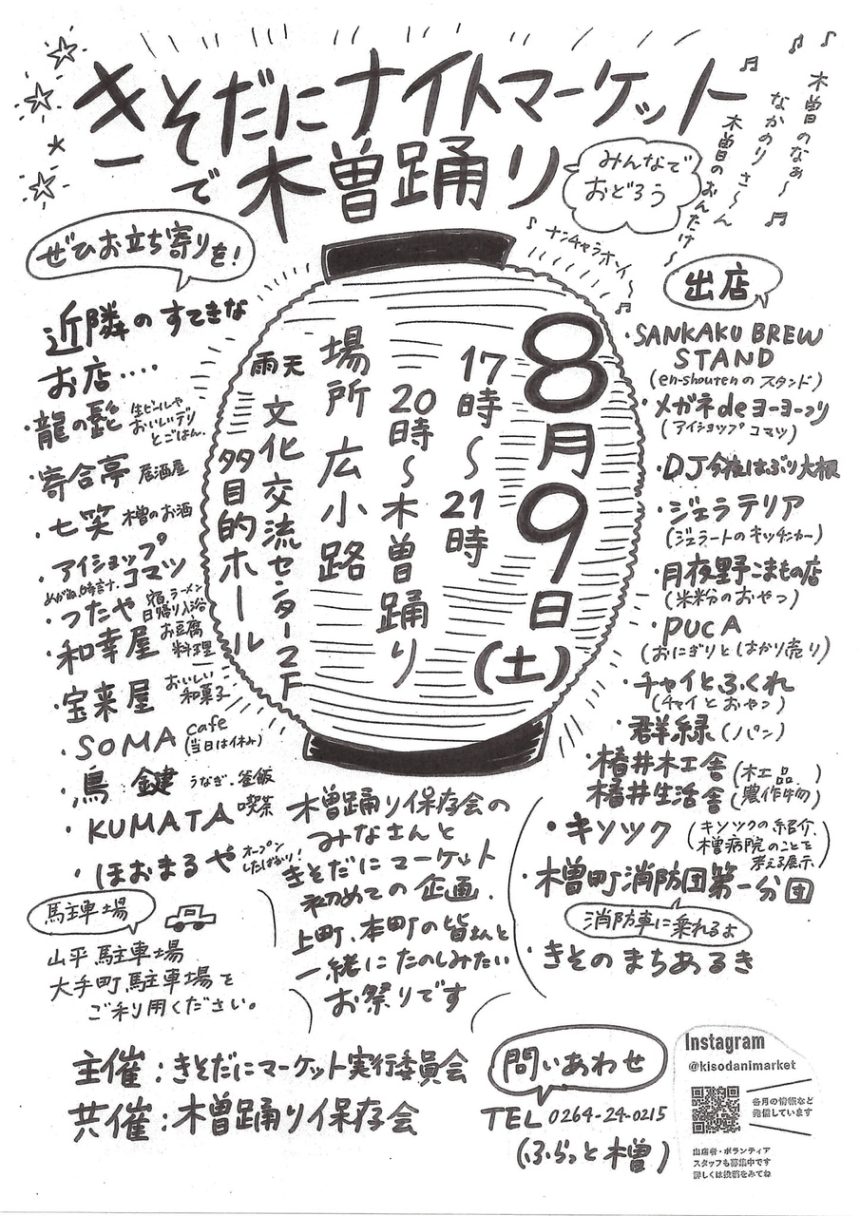 きそだにナイトマーケット
で木曽踊り
みんなで
おどろう
♪木曽のなぁ〜♬
なかのりさ〜ん
♬木曽のおんたけ〜
♪ナンチャラホイ〜♬
ぜひお立ち寄りを!
近隣のすてきな
お店‥‥
・龍の髭 生ビールや
おいしいデリ
とごはん.
・寄合亭 居酒屋
・七笑 木曽のお酒
・アイショップ
コマツ
めがね、時計.
・つたや 宿.ラーメン
日帰り入浴
・和幸屋 お豆腐
料理
・宝来屋 おいしい
和菓子
・SOMA cafe
(当日は休み)
・鳥鍵 うなぎ.釜飯
・KUMATA 喫茶
・ほおまるや オープン
したばかり!
8月9日(土)
17時〜21時
20時〜木曽踊り
場所 広小路
雨天 文化交流センター2F
多目的ホール
出店
・SANKAKU BREW
STAND
(en-shoutenのスタンド)
・メガネdeヨーヨーつり
(アイショップコマツ)
・DJ今夜はぶり大根
・ジェラテリア
(ジェラートのキッチンカー)
・月夜野こまもの店
(米粉のおやつ)
・PUCA
(おにぎりとはかり売り)
・チャイとふくれ
(チャイとおやつ)
・群緑(パン)
・椿井木工舎(木工品)
椿井生活舎(農作物)
・キソツク(キソツクの紹介、
木曽病院のことを
考える展示)
・木曽町消防団第一分団
消防車に乗れるよ
・きそのまちあるき
木曽踊り保存会の
みなさんと
きそだにマーケット
初めての企画.
上町、本町の皆さんと
一緒にたのしみたい
お祭りです
駐車場
山平駐車場
大手町駐車場を
ご利用ください。
主催:きそだにマーケット実行委員会
共催:木曽踊り保存会
問いあわせ
TEL 0264-24-0215
(ふらっと木曽)
Instagram
@kisodanimarket
各月の情報など
発信しています
出店者・ボランティア
スタッフも募集中です
詳しくは投稿をみてね